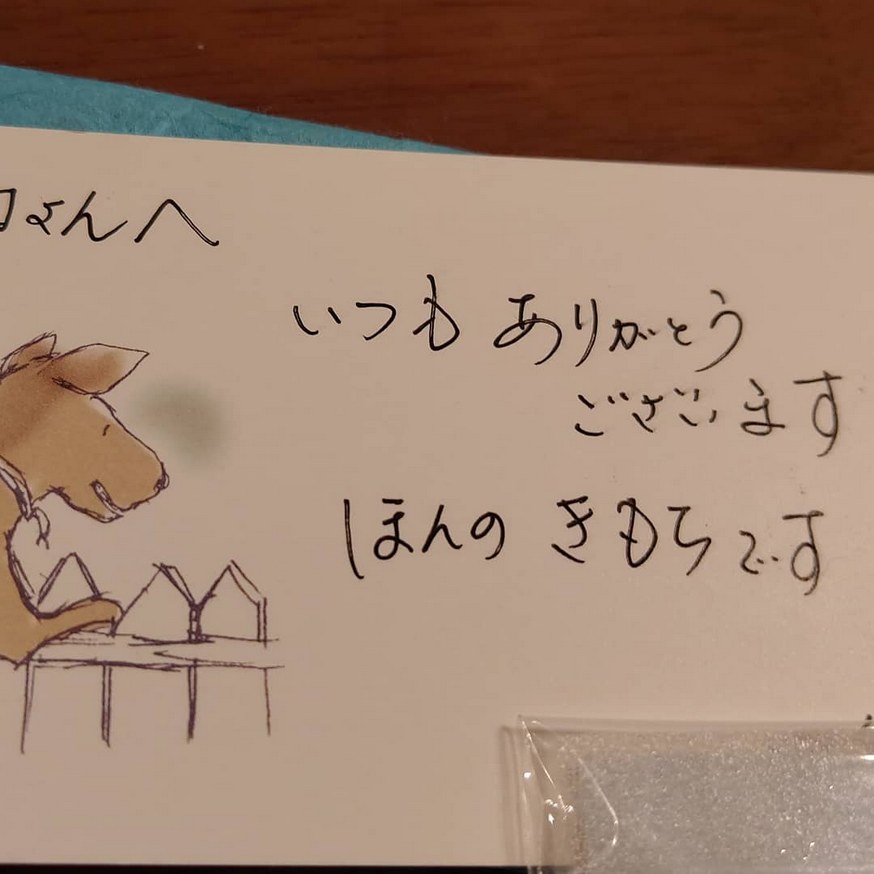 さんへ
いつも ありがとう
ございます
ほんの きもちです